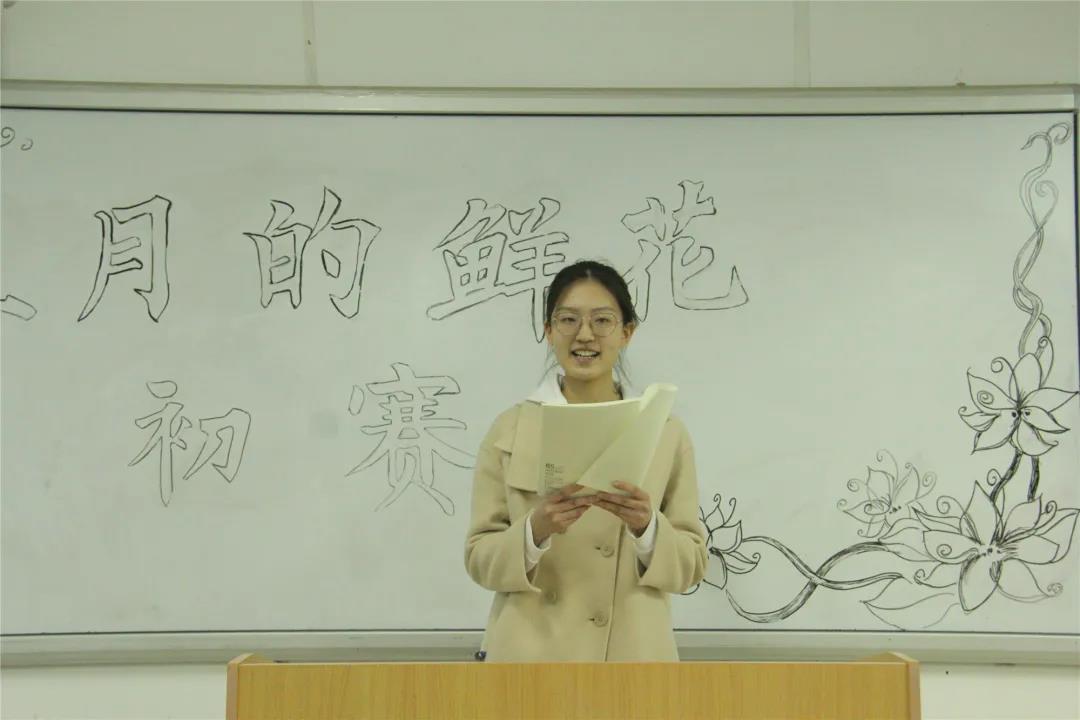 月的鲜花
初赛